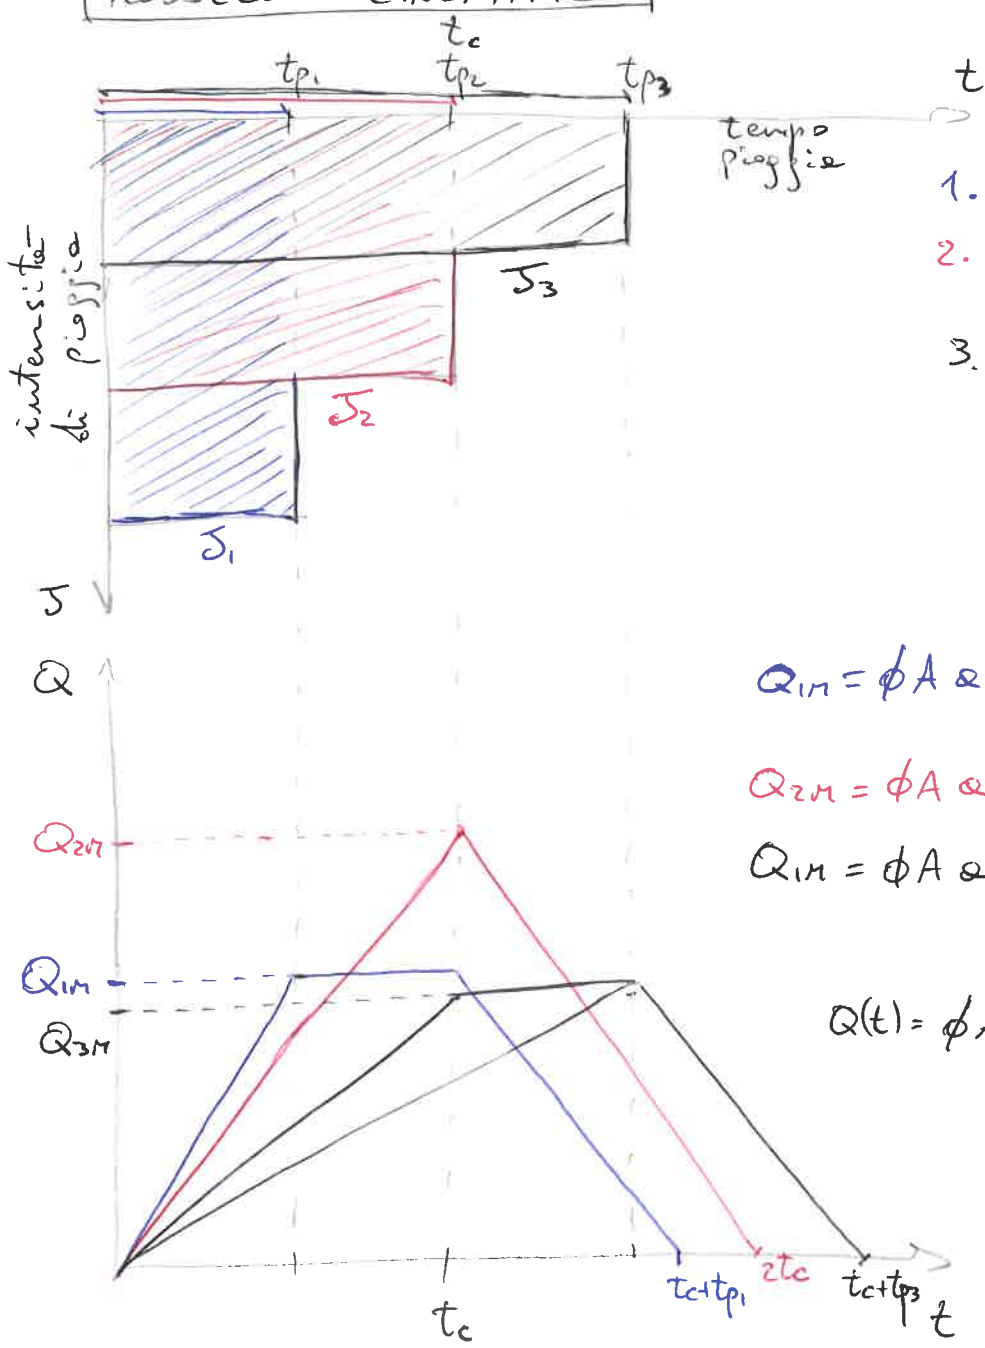 tc
tp1 tp2 tp3 t
tempo
pioggia
1.
2.
3.
intensità
di pioggia
J3
J2
J1
J
Q
Q1M = ϕ A a
Q2M = ϕ A a
Q1M = ϕ A a
Q2M
Q1M
Q3M
Q(t) = ϕ
tc+tp1 2tc tc+tp3
tc t